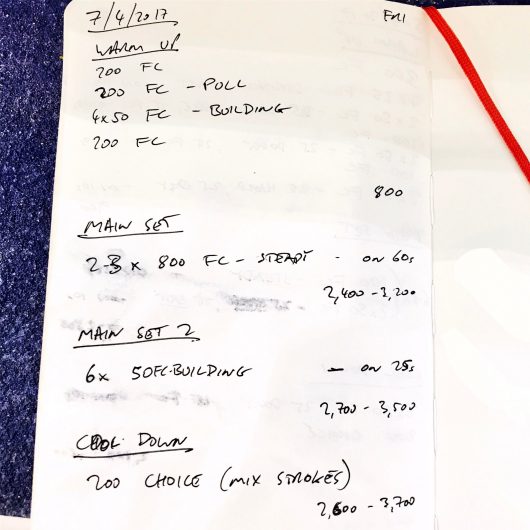 7/4/2017 FRI
WARM UP
200 FC
200 FC - PULL
4x50 FC - BUILDING
200 FC
800
MAIN SET
2-3 x 800 FC - STEADY - on 60s
2,400 - 3,200
MAIN SET 2
6x 50FC-BUILDING - on 25s
2,700 - 3,500
COOL DOWN
200 CHOICE (MIX STROKES)
2,600 - 3,700